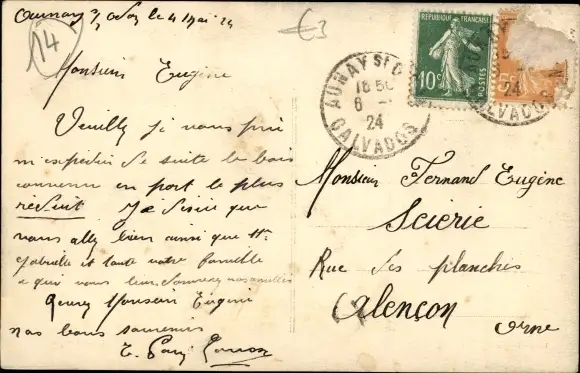 Aunay s/ Odon le 4 Mai 24
14
€3
Monsieur Eugène
Veuillez je vous prie
m'expédier de suite le bois
convenu en port le plus
reduit Je désire que
vous allez bien ainsi que
Gabrielle et toute votre famille
a qui vous
Monsieur Eugène
nos bons souvenirs
RÉPUBLIQUE FRANÇAISE
10c
POSTES
AUNAY S
18
6
24
CALVADOS
24
CALVADOS
Monsieur Fernand Eugène
Scierie
Rue des planches
Alençon
Orne